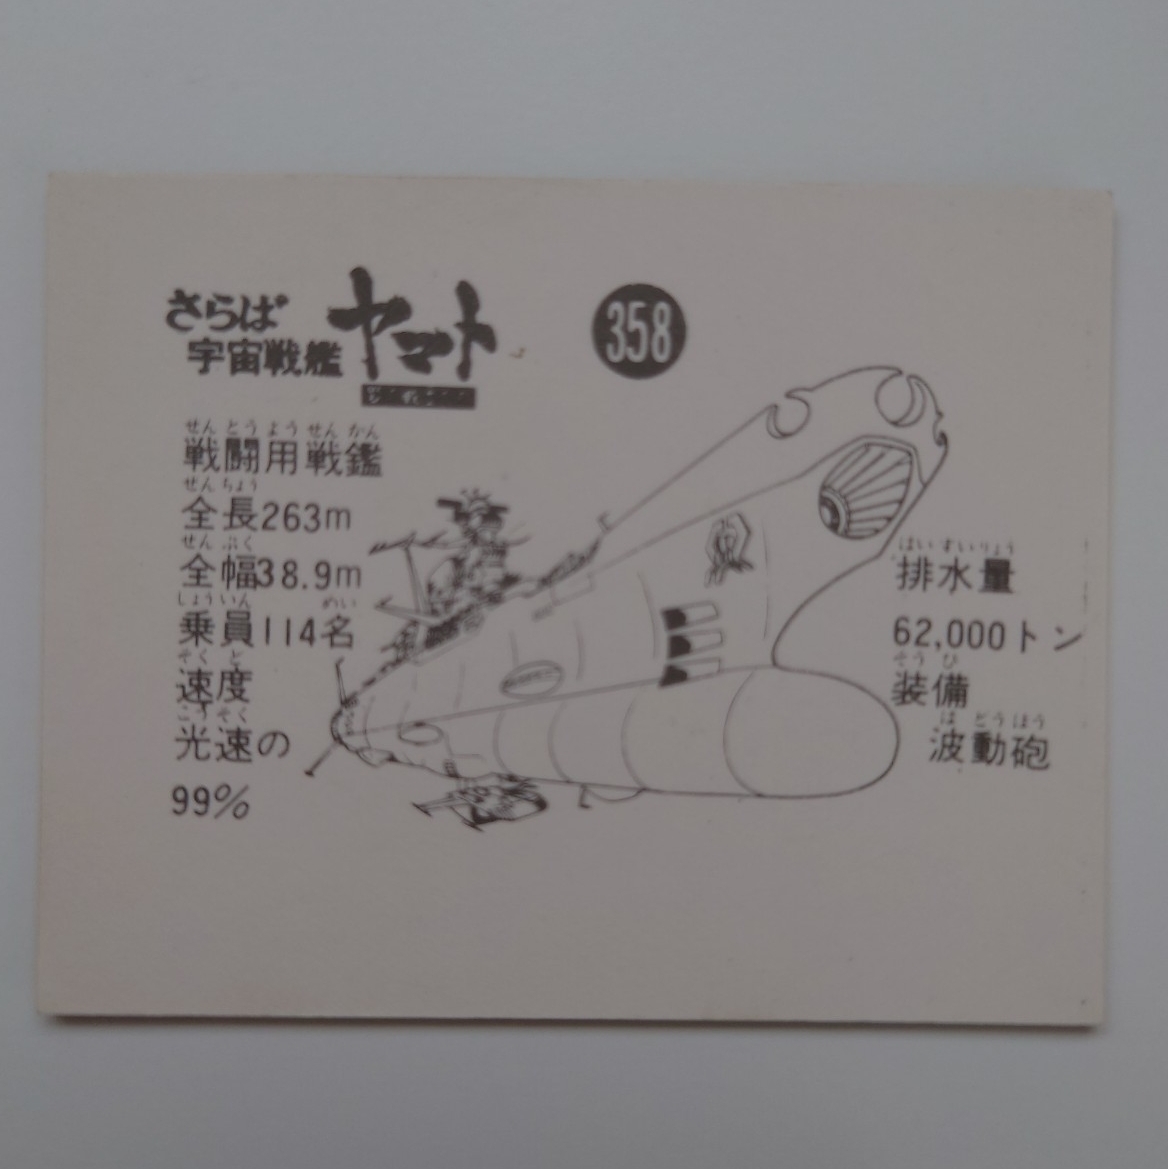 さらば
宇宙戦艦
ヤマト
358
せんとうようせんかん
戦闘用戦鑑
ぜんちょう
全長263m
せんぷく
全幅38.9m
しょういん めい
乗員114名
そくど
速度
こうそく
光速の
99%
はいすいりょう
排水量
62,000トン
そうび
装備
はどうほう
波動砲